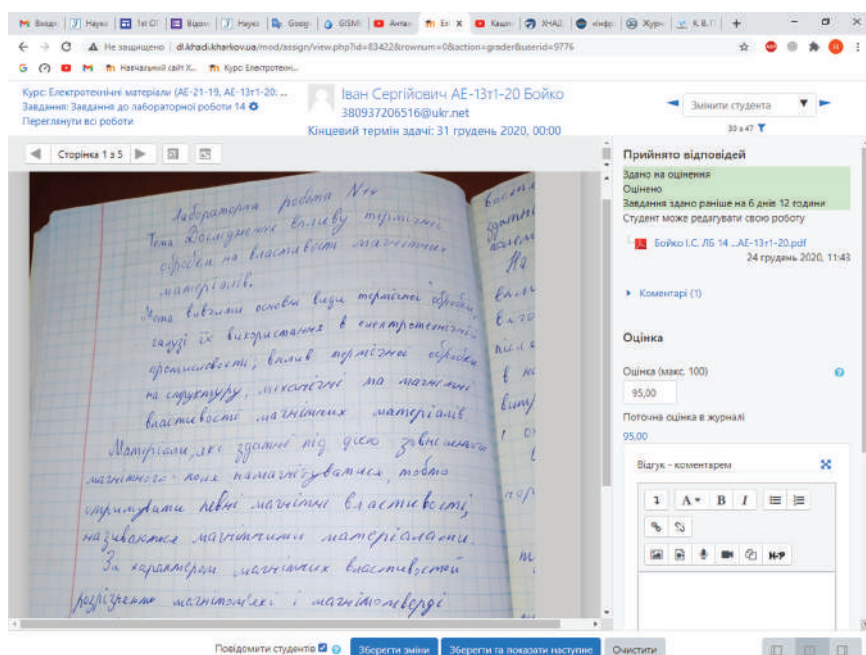 Входя
Науко
1st Cl
Відом
Науко
Goog
GISMI
Антах
Ел
Кашп
ХНАД
«інфо
Журн
К. В. Г
Не защищено | dl.khadi.kharkov.ua/mod/assign/view.php?id=83422&rownum=0&action=grader&userid=9776
Навчальний сайт Х...
Курс: Електротехні...
Курс: Електротехнічні матеріали (АЕ-21-19, АЕ-13т1-20: ...
Завдання: Завдання до лабораторної роботи 14
Переглянути всі роботи
Іван Сергійович АЕ-13т1-20 Бойко
380937206516@ukr.net
Кінцевий термін здачі: 31 грудень 2020, 00:00
Змінити студента
39 з 47
Сторінка 1 з 5
Лабораторна робота №14
Тема Дослідження впливу термічної
обробки на властивості магнітних
матеріалів.
Мета вивчити основні види термічної обробки,
галузі їх використання в електротехнічній
промисловості; вплив термічної обробки
на структуру, механічні та магнітні
властивості магнітних матеріалів.
Матеріали, які здатні під дією зовнішнього
магнітного поля намагнічуватися, тобто
отримувати певні магнітні властивості,
називаються магнітними матеріалами.
За характером магнітних властивостей
розрізняють магнітом'які і магнітотверді
Прийнято відповідей
Здано на оцінення
Оцінено
Завдання здано раніше на 6 днів 12 години
Студент може редагувати свою роботу
Бойко І.С. ЛБ 14 ...АЕ-13т1-20.pdf
24 грудень 2020, 11:43
Коментарі (1)
Оцінка
Оцінка (макс. 100)
95,00
Поточна оцінка в журналі
95.00
Відгук - коментарем
A B I
H-P
Повідомити студентів
Зберегти зміни
Зберегти та показати наступне
Очистити